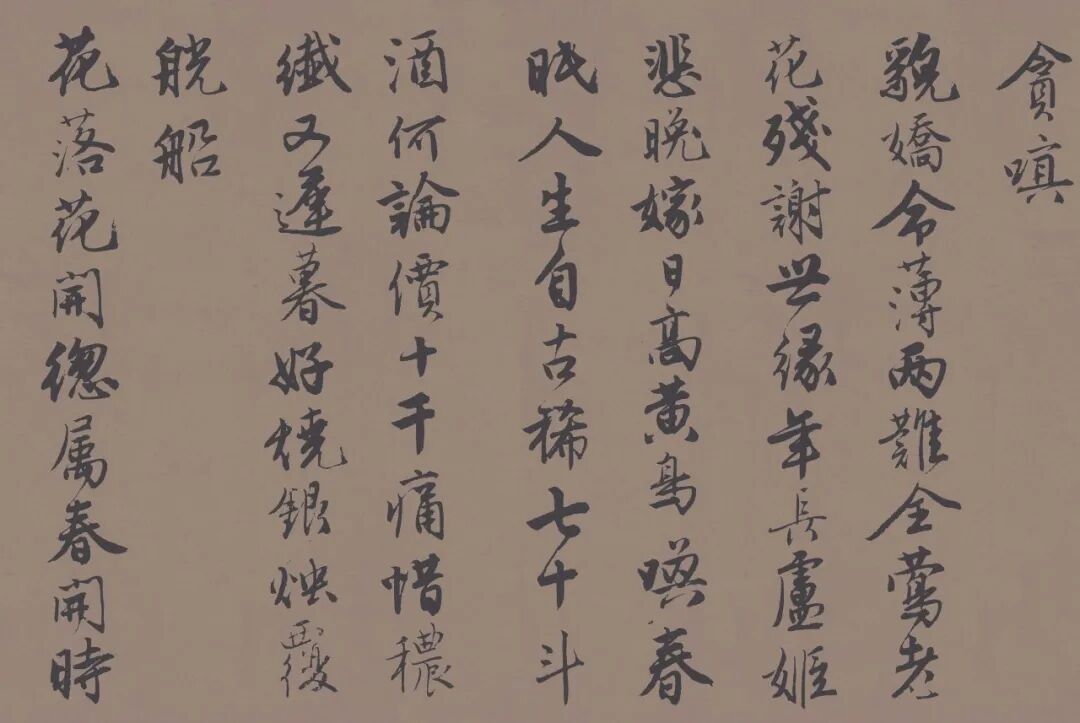 貪嗔
貌嬌命薄兩難全鶯老
花殘謝世緣年長盧姬
悲晚嫁日高黃鳥喚春
眠人生自古稀七十斗
酒何論價十千痛惜穠
纖又遲暮好燒銀燭覆
觥船
花落花開總屬春開時